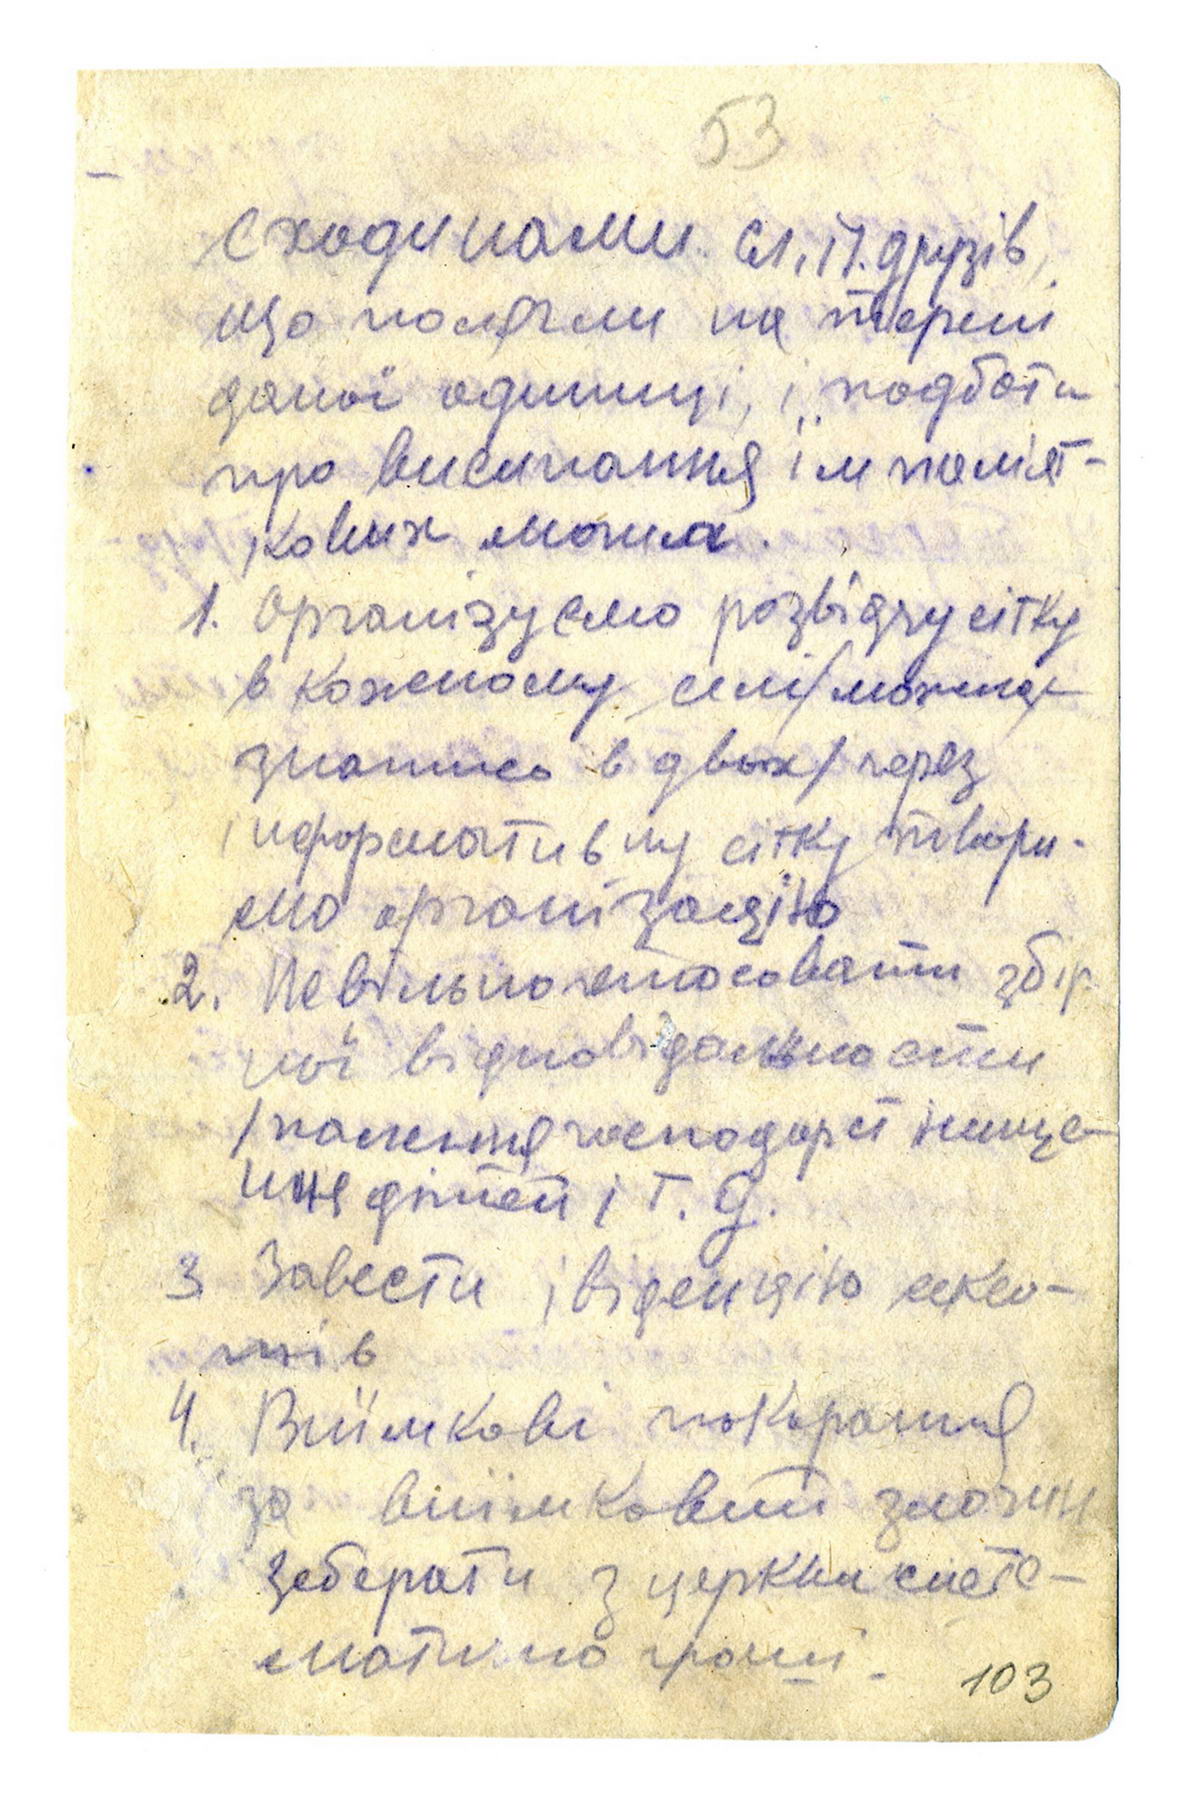 53
сходинами. сл. п. друзів,
що полягли на терені
даної одиниці, і подбати
про висипання їм пам'ят-
кових могил.
1. Організуємо розвідчу сітку
в кожному селі /можна
знатись в двох/ через
інформативну сітку твори-
мо організацію
2. Невільно стосовати збір
ної відповідальности
/палення господарст нище
ння дітей і т. д.
3 Завести івіденцію
4. Виїмкові покарання
за виїмковий злочин
Зеберати з церкви систе-
матично гроші.
103